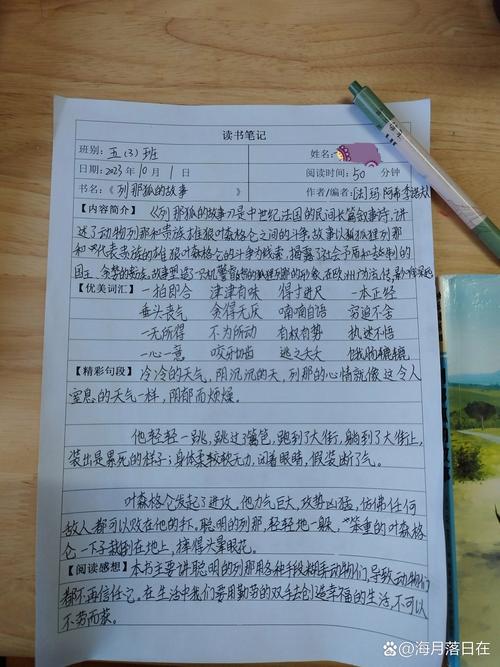 读书笔记
班别：五（3）班 姓名：
日期：2023年10月1日 阅读时间：50分钟
书名：《列那狐的故事》 作者/编者：[法]玛·阿希·季诺夫人
【内容简介】《列那狐的故事》是中世纪法国的民间长篇叙事诗，讲
述了动物列那和贵族雄狼叶森格仑之间的斗争，故事以狐狸列那
和代表贵族的雄狼叶森格仑的斗争为线索，揭露了社会矛盾和
国王
【优美词汇】 一拍即合 津津有味 得寸进尺 一本正经
垂头丧气 贪得无厌 喃喃自语 穷追不舍
一无所得 不为所动 有权有势 执迷不悟
一心一意 咬牙切齿 逃之夭夭 饥肠辘辘
【精彩句段】冷冷的天气，阴沉沉的天，列那的心情就像这令人
窒息的天气一样，阴郁而烦燥。
他轻轻一跳，跳过了篱笆，跑到了大街，躺到了大街上，
装出是累死的样子；身体柔软无力，闭着眼睛，假装断了气。
叶森格仑发起了进攻。他力气巨大，攻势凶猛，仿佛任何
敌人都可以败在他的手下，聪明的列那，轻轻地一躲，笨重的叶森格
仑一下子栽倒在地上，摔得头晕眼花。
【阅读感想】本书主要讲聪明的列那用各种手段糊弄动物们，导致动物们
都不再信任它。在生活中我们要用勤劳的双手去创造幸福的生活，不可以
不劳而获。
@海月落日在